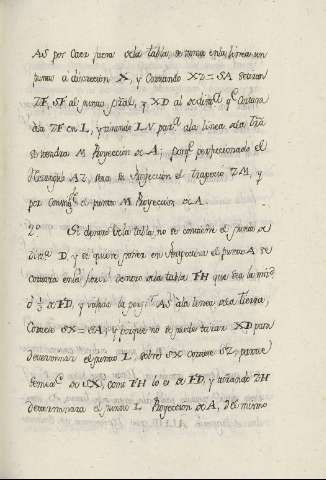 AS por caer fuera dela tabla, se tomara en la linea un
punto a discrecion X, y Cortando XZ=SA se tiran
ZF, SF al punto pral, y XD al de dist.ª q.e Cortara
ala ZF en L, y tirando LN par.ª ala linea dela tra
se tendra M Proyeccion de A; porq.e perfeccionado el
rectangulo AZ, sera su Proyeccion el trapecio ZM, y
por consig.te el punto M Proyeccion de A.
2.º Si dentro dela tabla no se contubiese el punto de
dist.ª D, y se quiere poner en Perspectiva el punto A se
cortara en la dentro dela tabla FH que sea la mit.d
ó 1/3 de FD, y tirada la perp. AS ala linea dela tierra,
Cortese SX=SA; y porque no se puede tirar XD para
determinar el punto L, sobre SX cortese SZ, parte
semeja.te de SX, como FH lo es de FD, y tirando ZH
determinara el punto L Proyeccion de A, del mismo